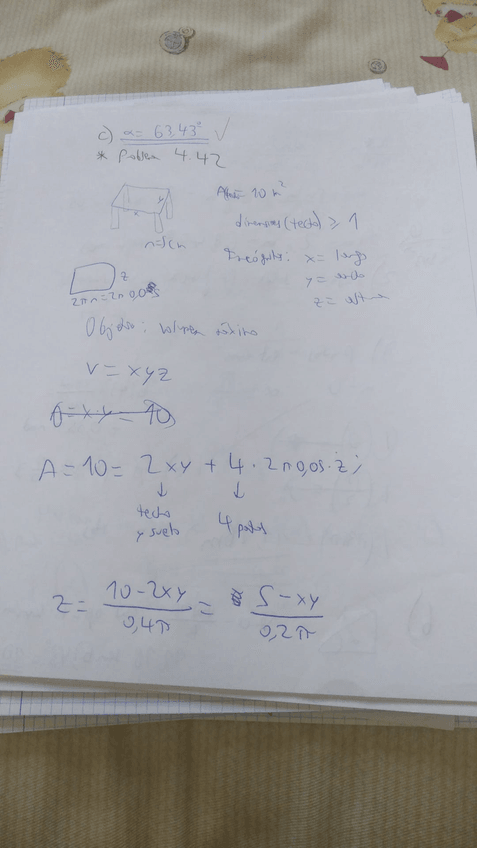 c) α = 63,43° ✓
* Problema 4.42
A = 10 m²
dimensiones (techo) ≥ 1
r=5cm
Incógnitas: x = largo
y = ancho
z = altura
z
2πr = 2π0,05
Objetivo: volumen máximo
V = xyz
A = 10 = 2xy + 4 · 2π0,05 · z;
↓ ↓
techo
y suelo
4 patas
z = (10 - 2xy)/(0,4π) = (5 - xy)/(0,2π)